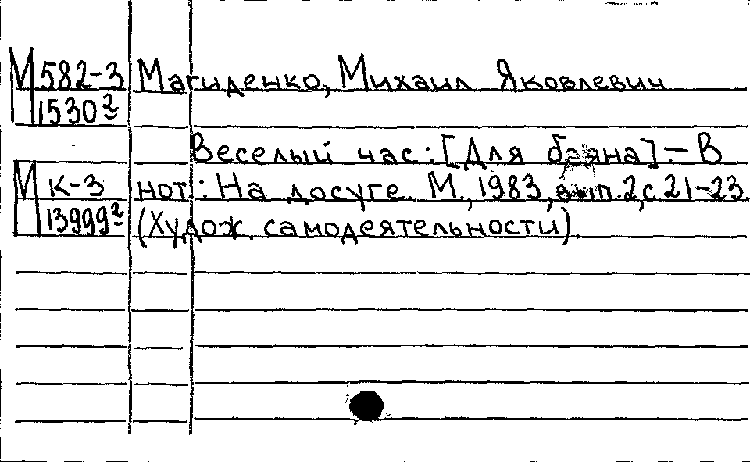 М 582-3 Магиденко, Михаил Яковлевич
1530²
Веселый час: [Для баяна]. – В
М К-3 нот.: На досуге. М., 1983, вып. 2, с. 21-23.
13999² (Худож. самодеятельности).